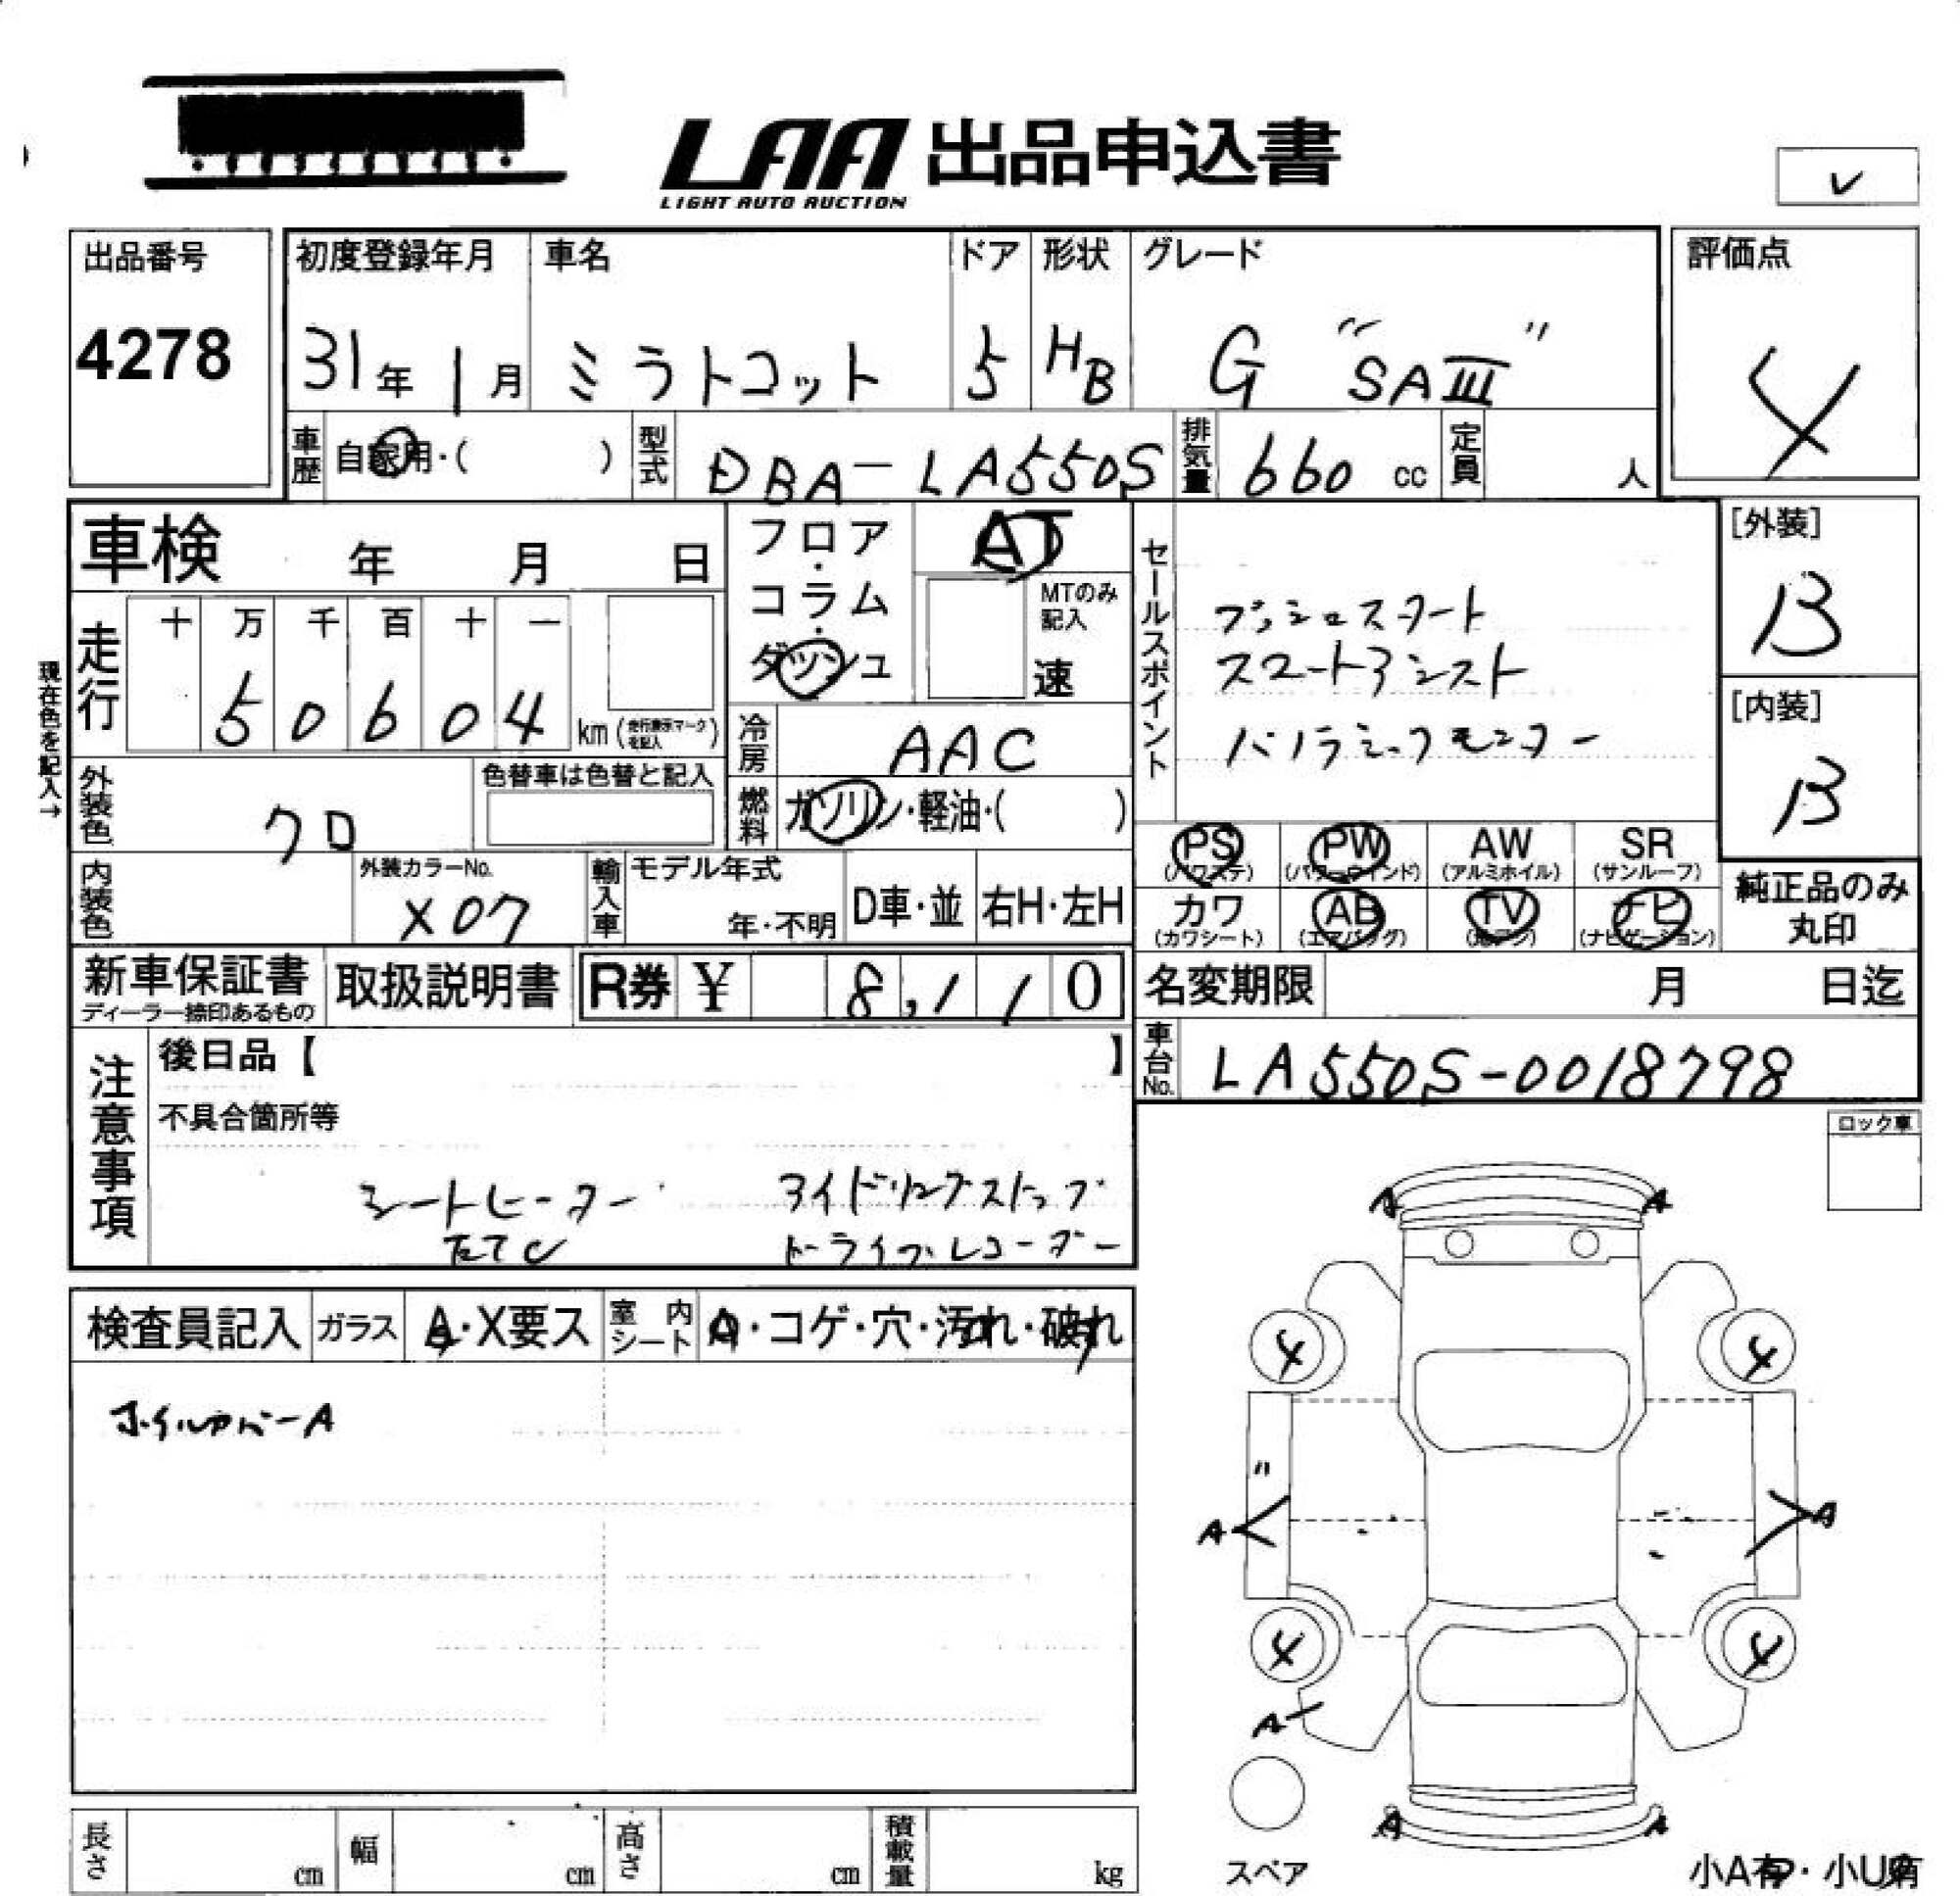 LAA 出品申込書
LIGHT AUTO AUCTION
✓
出品番号
4278
初度登録年月
31年1月
車名
ミラトコット
ドア
5
形状
HB
グレード
G "SAIII"
評価点
4
車歴 自家用・( )
型式 DBA-LA550S
排気量 660 cc
定員 人
車検 年 月 日
現在色を記入→
走行
十 万 千 百 十 一
5 0 6 0 4 km(走行表示マークを記入)
フロア・コラム・ダッシュ
AT
MTのみ記入
速
冷房 AAC
燃料 ガソリン・軽油・( )
外装色 クロ
色替車は色替と記入
内装色
外装カラーNo.
X07
輸入車
モデル年式
年・不明
D車・並
右H・左H
セールスポイント
プッシュスタート
スマートアシスト
パノラミックモニター
[外装]
B
[内装]
B
PS (パワステ)
PW (パワーウインド)
AW (アルミホイル)
SR (サンルーフ)
カワ (カワシート)
AB (エアバッグ)
TV (地デジ)
ナビ (ナビゲーション)
純正品のみ丸印
新車保証書
ディーラー捺印あるもの
取扱説明書
R券 ¥ 8,110
名変期限 月 日迄
車台No. LA550S-0018798
注意事項
後日品【 】
不具合箇所等
シートヒーター アイドリングストップ
ETC ドライブレコーダー
ロック車
検査員記入
ガラス A・X要ス
室内シート
・コゲ・穴・汚れ・破れ
ホイルカバーA
A A
4 4
〃
A A
4 4
A
A A
スペア
小A有・小U有
長さ cm
幅 cm
高さ cm
積載量 kg